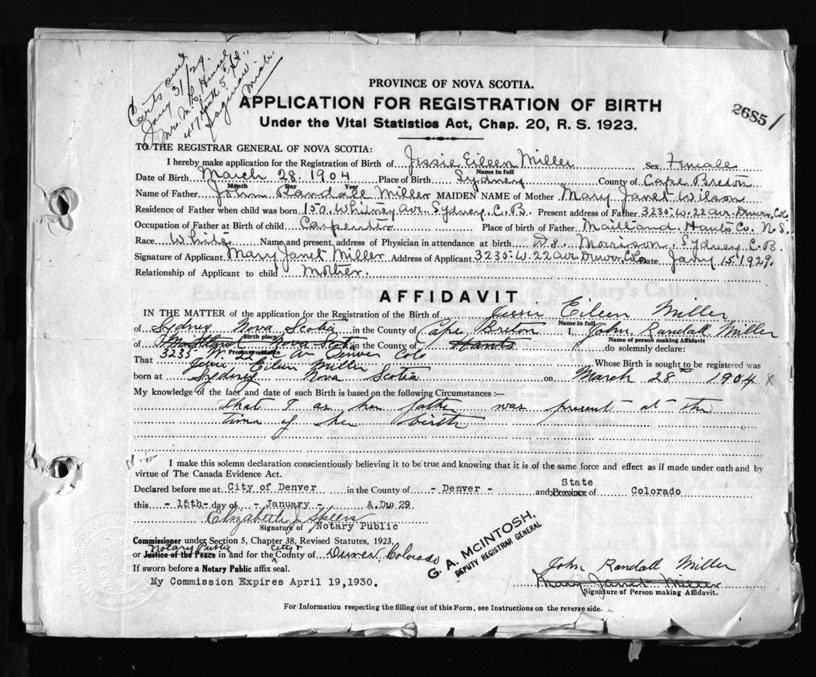 Certs out
Jany 31/29
Mrs. M. L.
417 South 5th St.
Saginaw
Mich.
PROVINCE OF NOVA SCOTIA.
APPLICATION FOR REGISTRATION OF BIRTH
Under the Vital Statistics Act, Chap. 20, R. S. 1923.
2685/
TO THE REGISTRAR GENERAL OF NOVA SCOTIA:
I hereby make application for the Registration of Birth of Jessie Eileen Miller Sex Female
Name in full
Date of Birth March 28. 1904 Place of Birth Sydney County of Cape Breton
Month Day Year
Name of Father John Randall Miller MAIDEN NAME of Mother Mary Janet Wilson
Residence of Father when child was born 150. Whitney av. Sydney. C. B. Present address of Father 3230. W. 22 av. Denver, Col.
Occupation of Father at Birth of child Carpenter Place of birth of Father Maitland Hants Co. N. S.
Race White Name and present address of Physician in attendance at birth Dr. Morrison, Sydney C. B.
Signature of Applicant Mary Janet Miller Address of Applicant 3235. W. 22 av. Denver Colo Date Jany 15. 1929.
Relationship of Applicant to child Mother.
AFFIDAVIT
IN THE MATTER of the application for the Registration of the Birth of Jessie Eileen Miller
Name in full
of Sydney Nova Scotia in the County of Cape Breton I, John Randall Miller
Birth place Name of person making Affidavit
of Maitland Nova Scotia in the County of Hants do solemnly declare:
3235 W 22 Av Denver Colo
That Jessie Eileen Miller Whose Birth is sought to be registered was
born at Sydney Nova Scotia on March 28th 1904
My knowledge of the fact and date of such Birth is based on the following Circumstances :—
that I as her father was present at the
time of her birth
I make this solemn declaration conscientiously believing it to be true and knowing that it is of the same force and effect as if made under oath and by
virtue of The Canada Evidence Act.
Declared before me at City of Denver in the County of - Denver - and State Province of Colorado
this - 15th- day of - January - A.D. 29
Elizabeth J. Speers
Signature of Notary Public
Commissioner under Section 5, Chapter 38, Revised Statutes, 1923.
Notary Public City &
or Justice of the Peace in and for the County of Denver, Colorado
If sworn before a Notary Public affix seal.
My Commission Expires April 19,1930.
G. A. McINTOSH,
DEPUTY REGISTRAR GENERAL
John Randall Miller
Mary Janet Miller
Signature of Person making Affidavit.
For Information respecting the filling out of this Form, see Instructions on the reverse side.